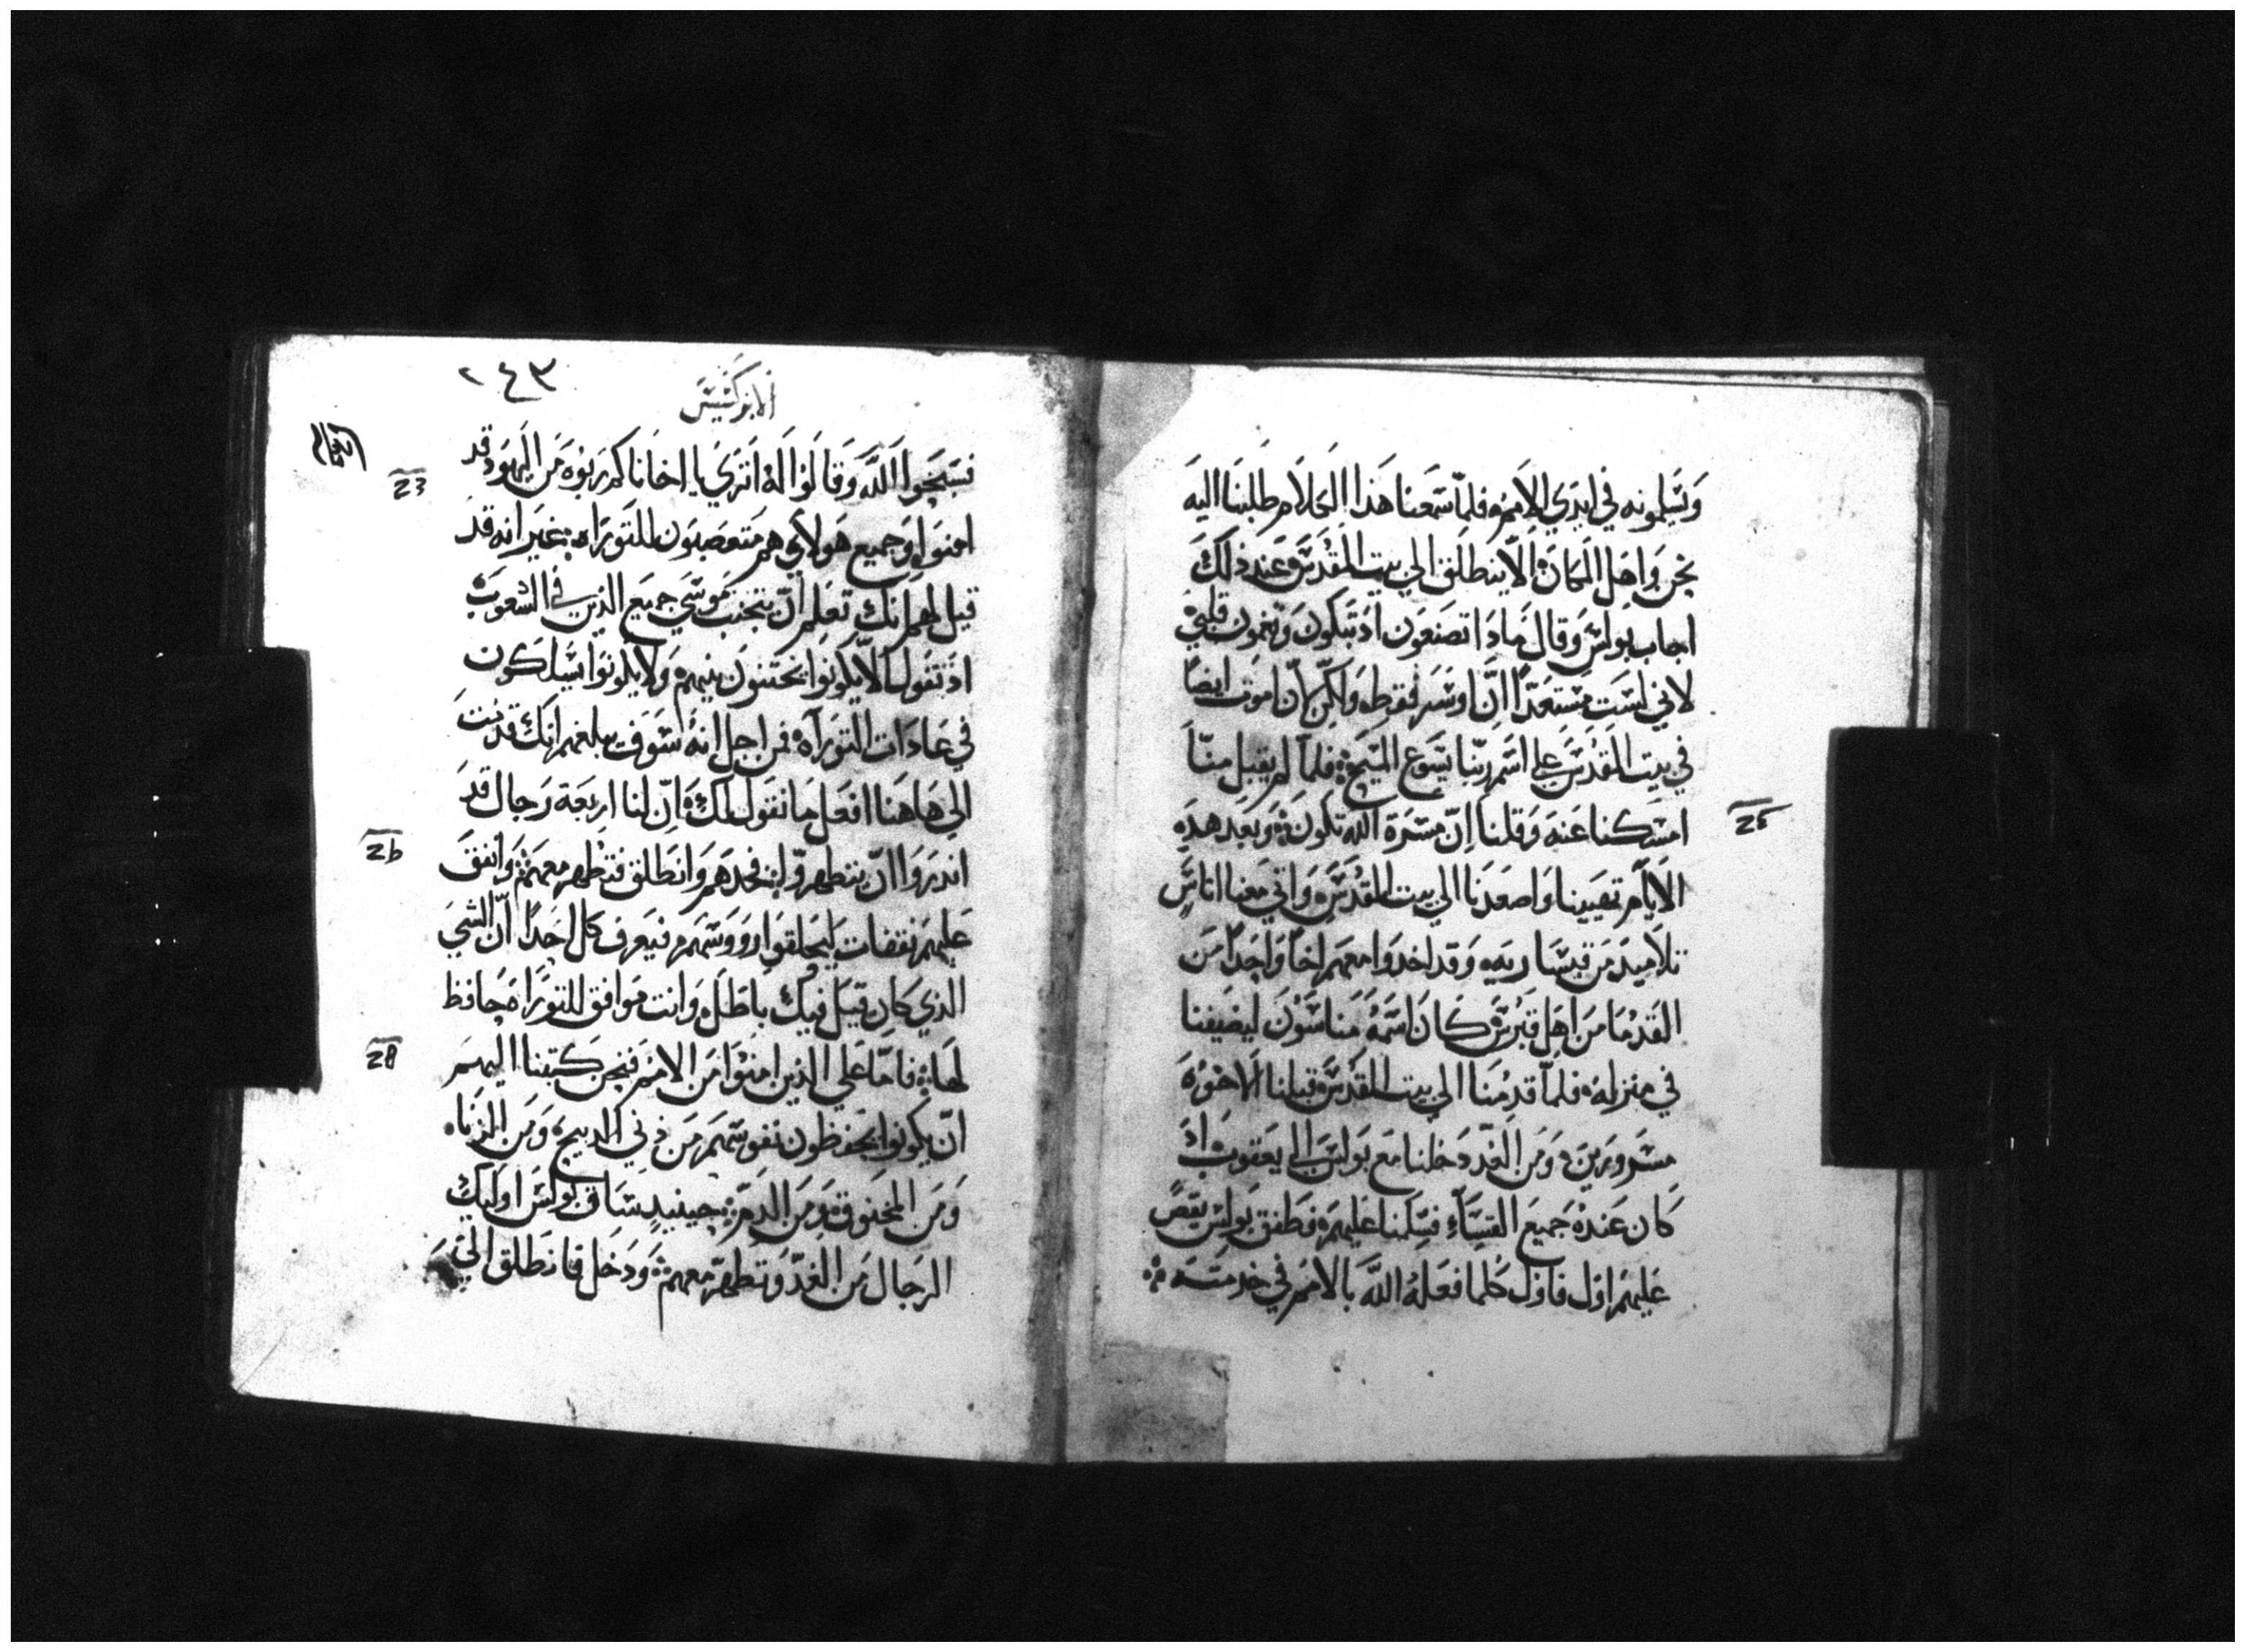 وتسلمونه في ايدي الامم فلما سمعنا هذا الكلام طلبنا اليه
نحن واهل المكان الا ينطلق الي بيت المقدس وعند ذلك
اجاب بولس وقال ماذا تصنعون اذ تبكون وتغمون قلبي
لاني لست مستعدا ان اوسر فقط ولكن ان اموت ايضا
في بيت المقدس علي اسم ربنا يسوع المسيح فلما لم يقبل منا
امسكنا عنه وقلنا ان مسرة الله تكون وبعد هذه
الايام تهيينا واصعدنا الي بيت المقدس واتي معنا اناس
تلاميد من قيساريه وقد اخدوا معهم اخا واحدا من
القدما من اهل قبرس كان اسمه مناسون ليضيفنا
في منزله فلما قدمنا الي بيت المقدس قبلنا الاخوه
مسرورين ومن الغد دخلنا مع بولس الي يعقوب اذ
كان عنده جميع القساء فسلمنا عليهم فطفق بولس يقص
عليهم اول فاول كلما فعله الله بالامم في خدمته
25
٢٤٣
الابركسيس
فسبحوا الله وقالوا له اتري يا اخانا كم ربوه من اليهود قد
امنوا وجميع هولاي هم متعصبون للتوراه غير انه قد
قيل لهم انك تعلم ان يتجنب موسي جميع الذين في الشعوب
اذ تقول الا يكونوا يختنون بنيهم ولا يكونوا يسلكون
في عادات التوراه فمن اجل انه سوف يبلغهم انك قد اتيت
الي هاهنا افعل ما نقول لك ان لنا اربعة رجال قد
اندروا ان يتطهروا فخدهم وانطلق فتطهر معهم وانفق
عليهم نفقات ليحلقوا رووسهم فيعرف كل احدا ان الشي
الذي كان قيل فيك باطل وانت موافق للتوراه حافظ
لها فاما علي الذين امنوا من الامم فنحن كتبنا اليهم
ان يكونوا يحفظون نفوسهم من ذني الدبيح ومن الزناه
ومن المخنوق ومن الدم حينيد ساق بولس اوليك
الرجال من الغد وتطهر معهم ودخل فانطلق الي
23
26
28